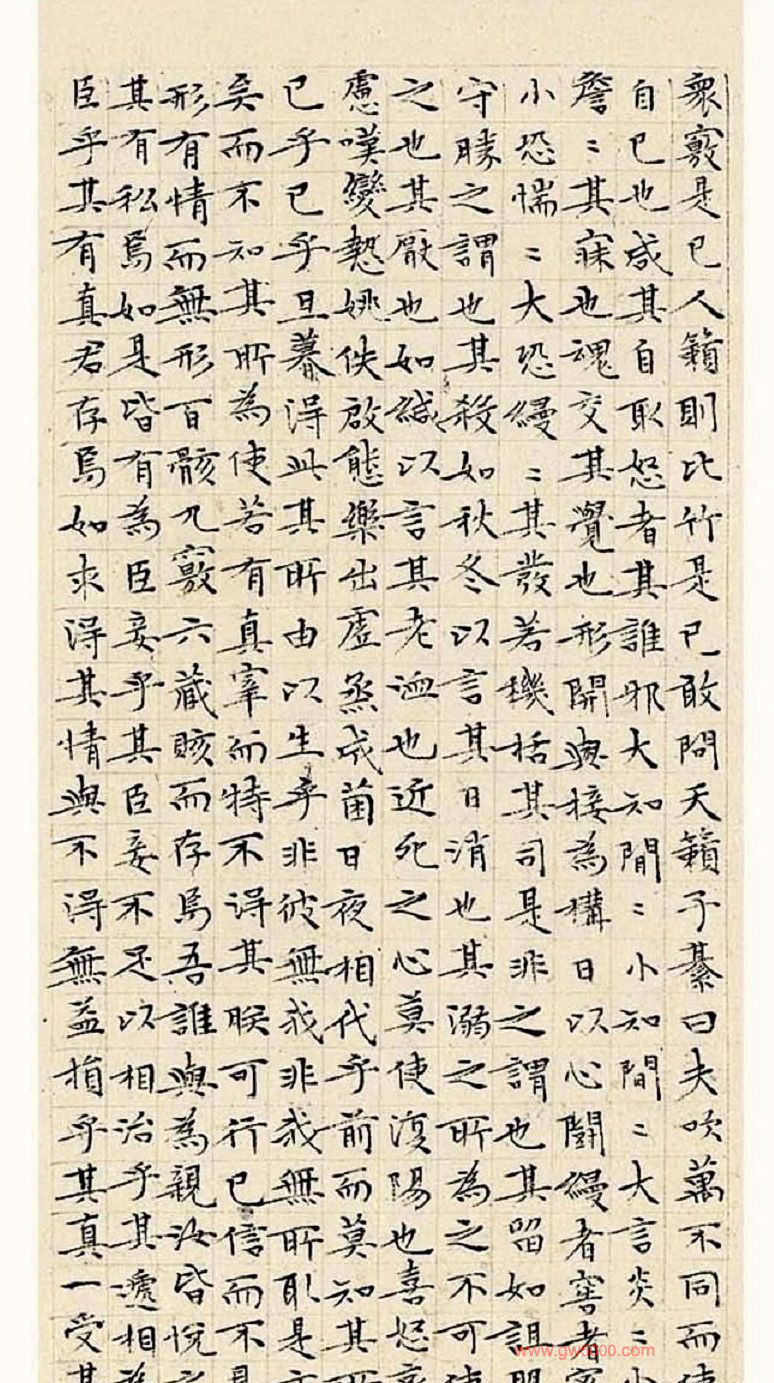 衆竅是已人籟則比竹是已敢問天籟子綦曰夫吹萬不同而使
自已也咸其自取怒者其誰邪大知閒〻小知間〻大言炎〻小
詹〻其寐也魂交其覺也形開與接為構日以心鬬縵者窖者密
小恐惴〻大恐縵〻其發若機栝其司是非之謂也其留如詛盟
守勝之謂也其殺如秋冬以言其日消也其溺之所為之不可使
之也其厭也如緘以言其老洫也近死之心莫使復陽也喜怒哀
慮嘆變慹姚佚啟態樂出虛蒸成菌日夜相代乎前而莫知其所
已乎已乎旦暮得此其所由以生乎非彼無我非我無所取是亦
矣而不知其所為使若有真宰而特不得其眹可行已信而不見
形有情而無形百骸九竅六藏賅而存焉吾誰與為親汝皆悅之
其有私焉如是皆有為臣妾乎其臣妾不足以相治乎其遞相為
臣乎其有真君存焉如求得其情與不得無益損乎其真一受其